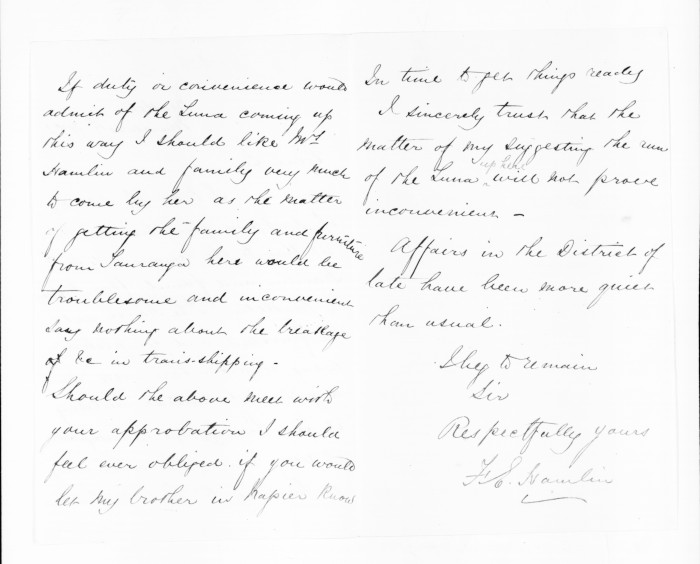 If duty or convenience would
admit of the Luna coming up
this way I should like Mrs
Hamlin and family very much
to come by her as the matter
of getting the family and furniture
from Tauranga here would be
troublesome and inconvenient
say nothing about the breakage
&c in trans-shipping -
Should the above meet with
your approbation I should
feel ever obliged if you would
let my brother in Napier know
In time to get things ready
I sincerely trust that the
matter of my suggesting the run
of the Luna up here will not prove
inconvenient -
Affairs in the District of
late have been more quiet
than usual.
I beg to remain
Sir
Respectfully yours
F. E. Hamlin